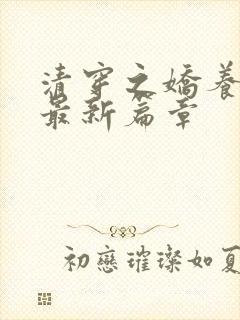 清穿之嬌養
最新篇章
初戀璀璨如夏